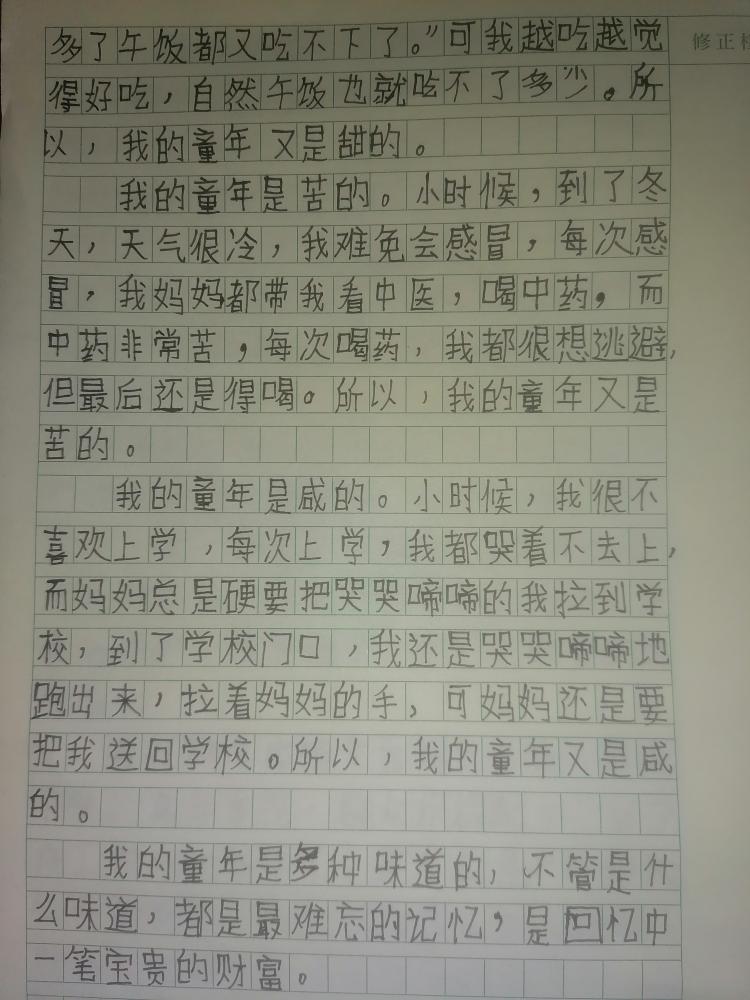 多了午饭都又吃不下了。”可我越吃越觉
修正栏
得好吃，自然午饭也就吃不了多少。所
以，我的童年又是甜的。
我的童年是苦的。小时候，到了冬
天，天气很冷，我难免会感冒，每次感
冒，我妈妈都带我看中医，喝中药，而
中药非常苦，每次喝药，我都很想逃避，
但最后还是得喝。所以，我的童年又是
苦的。
我的童年是咸的。小时候，我很不
喜欢上学，每次上学，我都哭着不去上，
而妈妈总是硬要把哭哭啼啼的我拉到学
校，到了学校门口，我还是哭哭啼啼地
跑出来，拉着妈妈的手，可妈妈还是要
把我送回学校。所以，我的童年又是咸
的。
我的童年是多种味道的，不管是什
么味道，都是最难忘的记忆，是回忆中
一笔宝贵的财富。